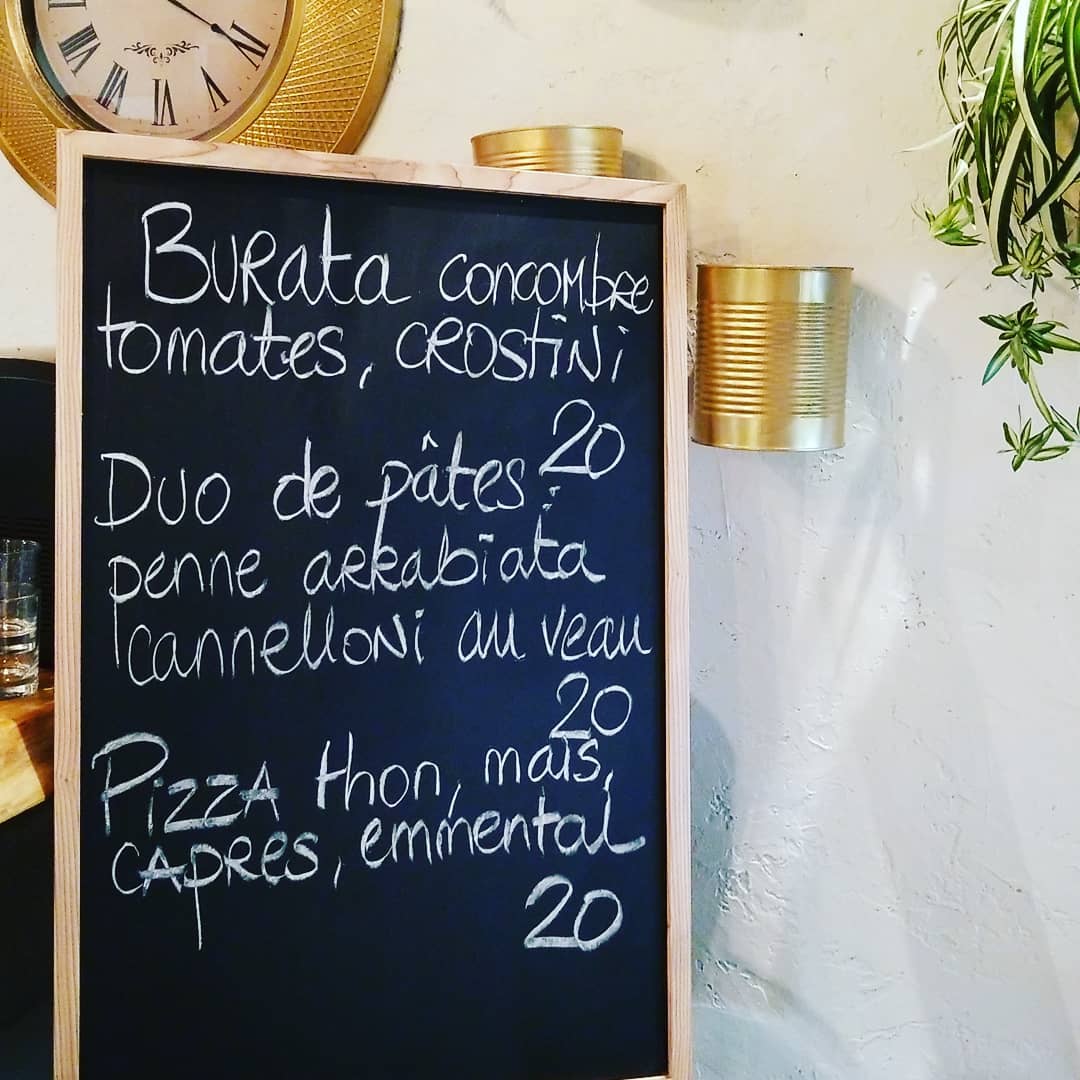 Burata concombre
tomates, crostini
20
Duo de pâtes :
penne arrabiata
cannelloni au veau
20
Pizza thon, maïs,
capres, emmental
20
IIII
III
VII
VI
V